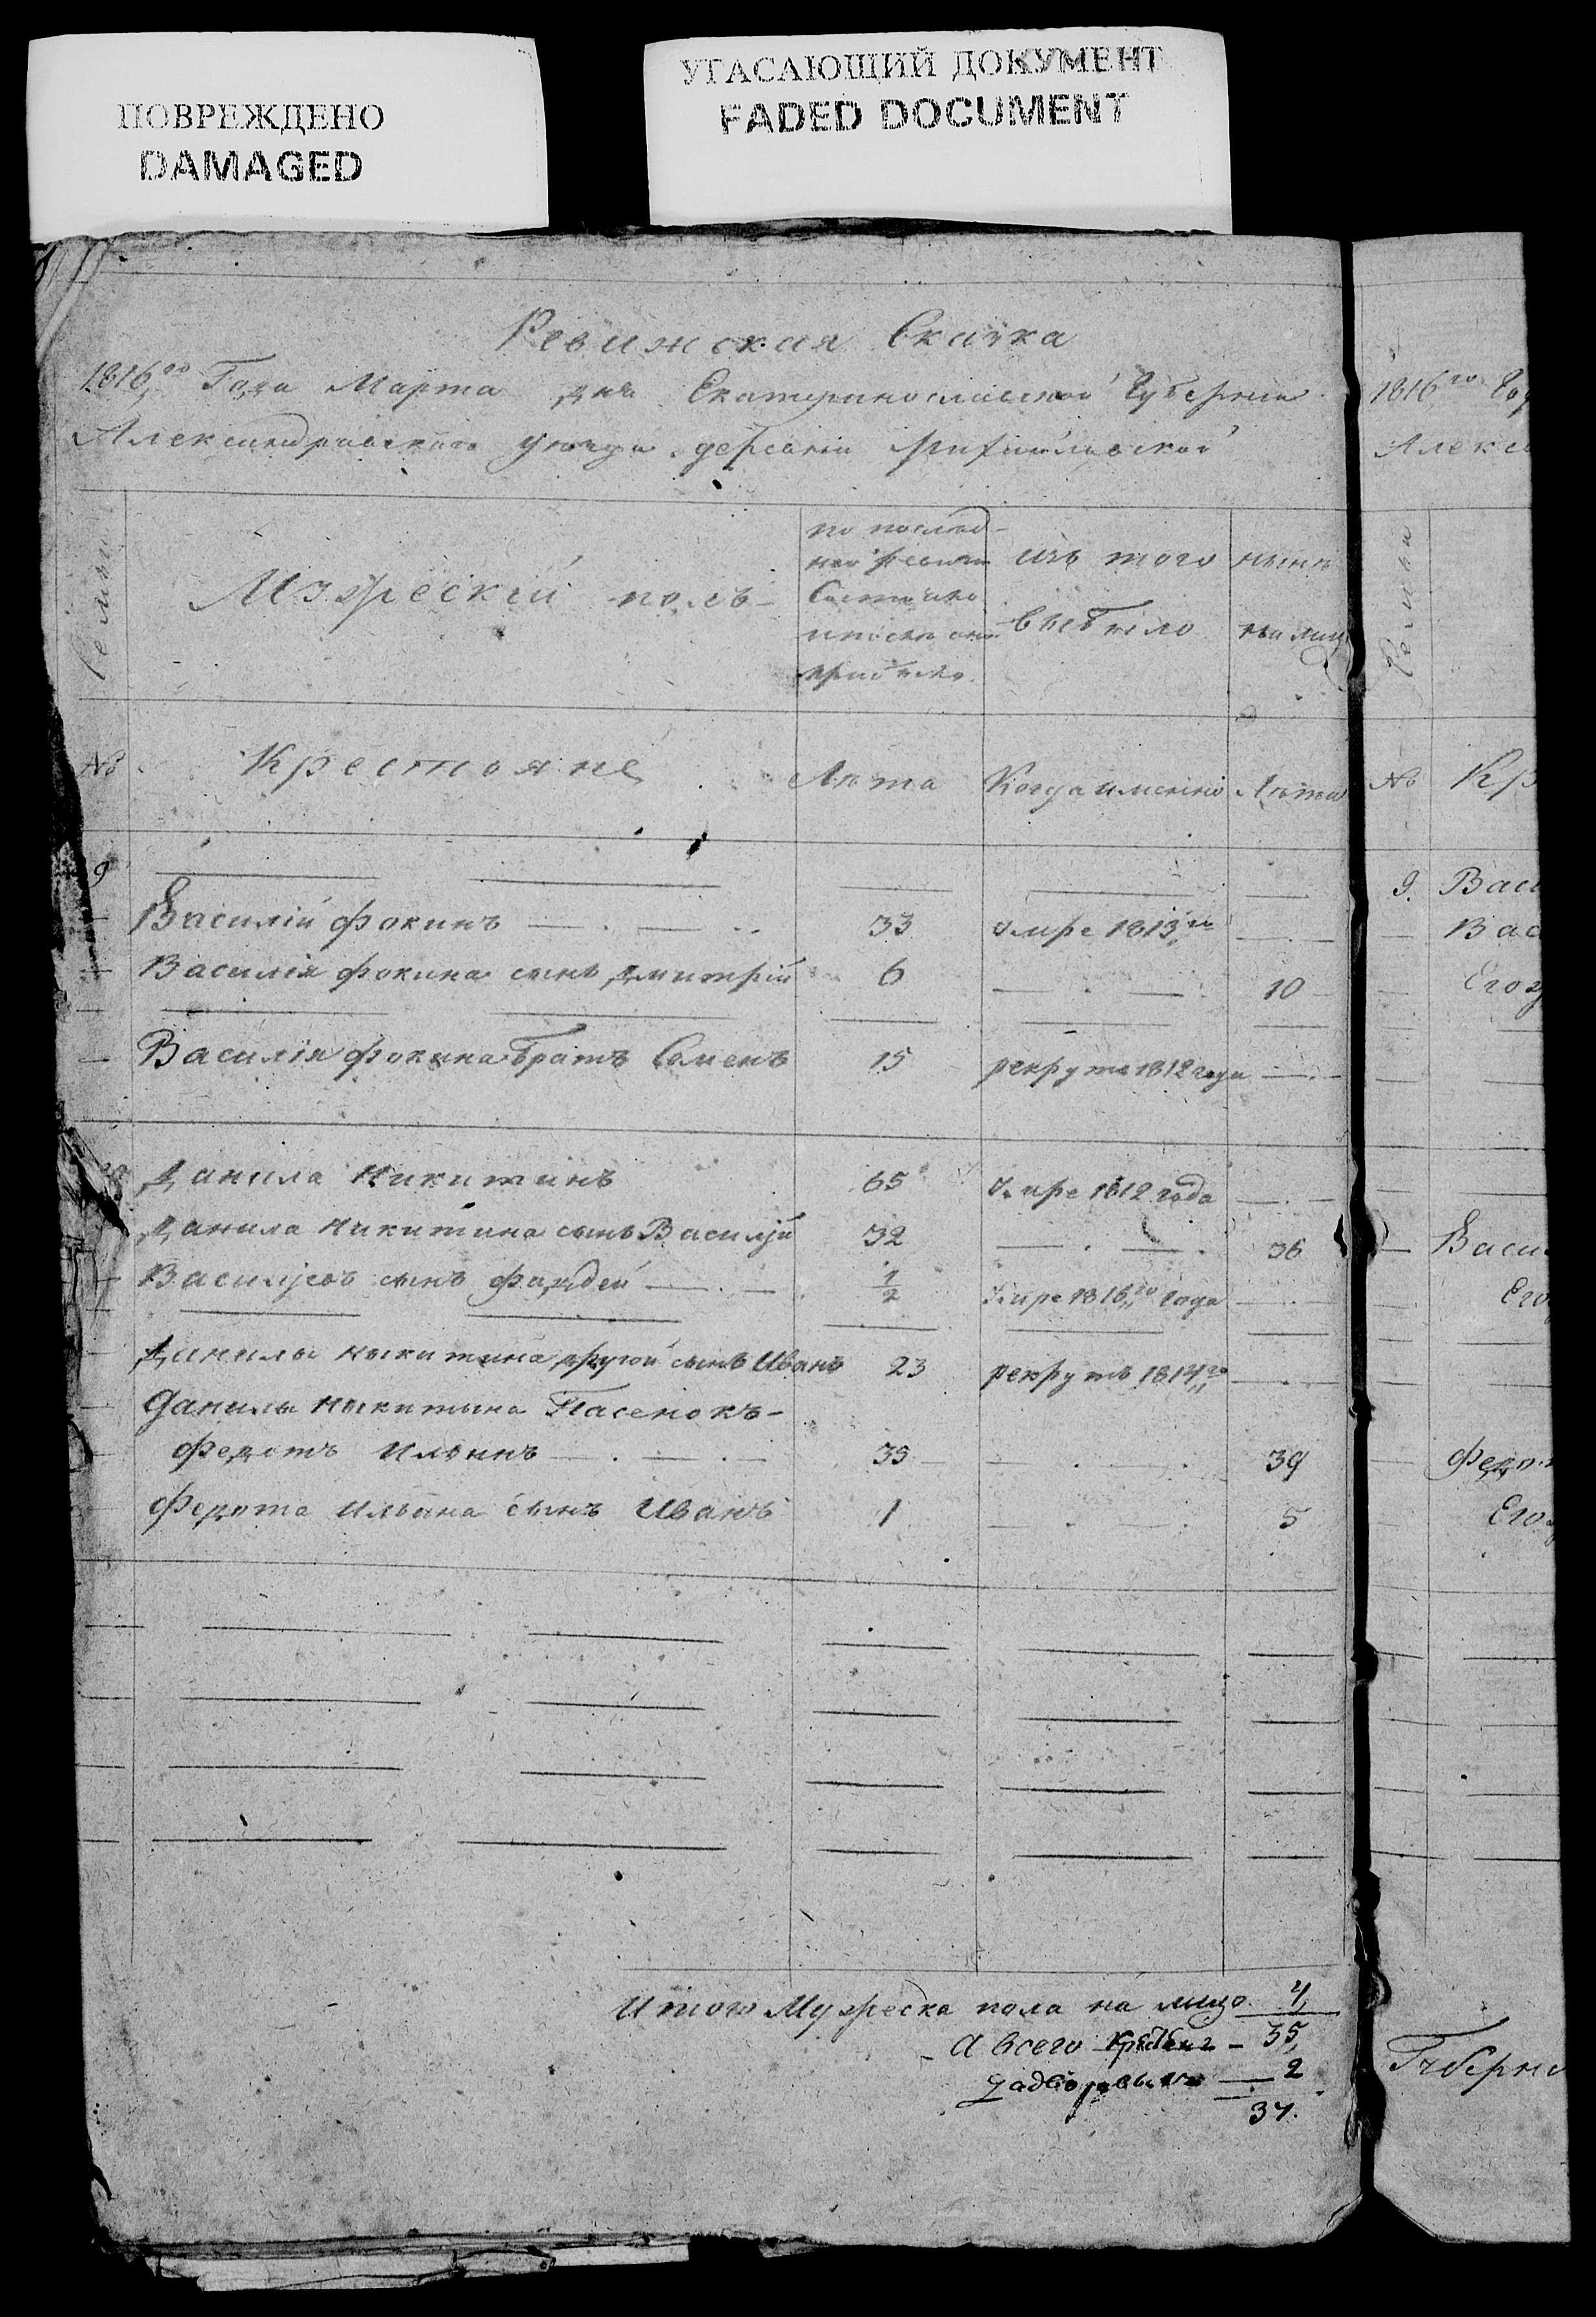 ПОВРЕЖДЕНО
DAMAGED
УГАСАЮЩИЙ ДОКУМЕНТ
FADED DOCUMENT
Ревижская Скаска
1816,го Года Марта дня Екатеринославской Губернии
Александровскаго уезда деревни
Мужеский полъ
по послед-
ней ревизии
Состояло
и после оной
прибыло
изъ того
выбыло
ныне
на лицо
№ Крестояне Лѣта Когда именно Лѣта
9
Василій Фокинъ 33 Умре 1813го
Василія Фокина сынъ Дмитрій 6 10
Василія Фокина братъ Семенъ 15 рекрута 1812 года
Данила Никитинъ 65 Умре 1812 года
Данила Никитина сынъ Василій 32 36
Васильевъ сынъ Фаддей 1/2 Умре 1816го года
Данилы Никитина другой сынъ Иванъ 23 рекрутъ 1814го
Данилы Никитина Пасенокъ-
Федотъ Ильинъ 35 39
Федота Ильина сынъ Иванъ 1 5
Итого Мужеска пола на лицо 4
А всего 35
2
37.
1816го Год
Алекс
№ Кр
9. Васи
Вас
Его
Васи
Его
Федо
Его
Губерн